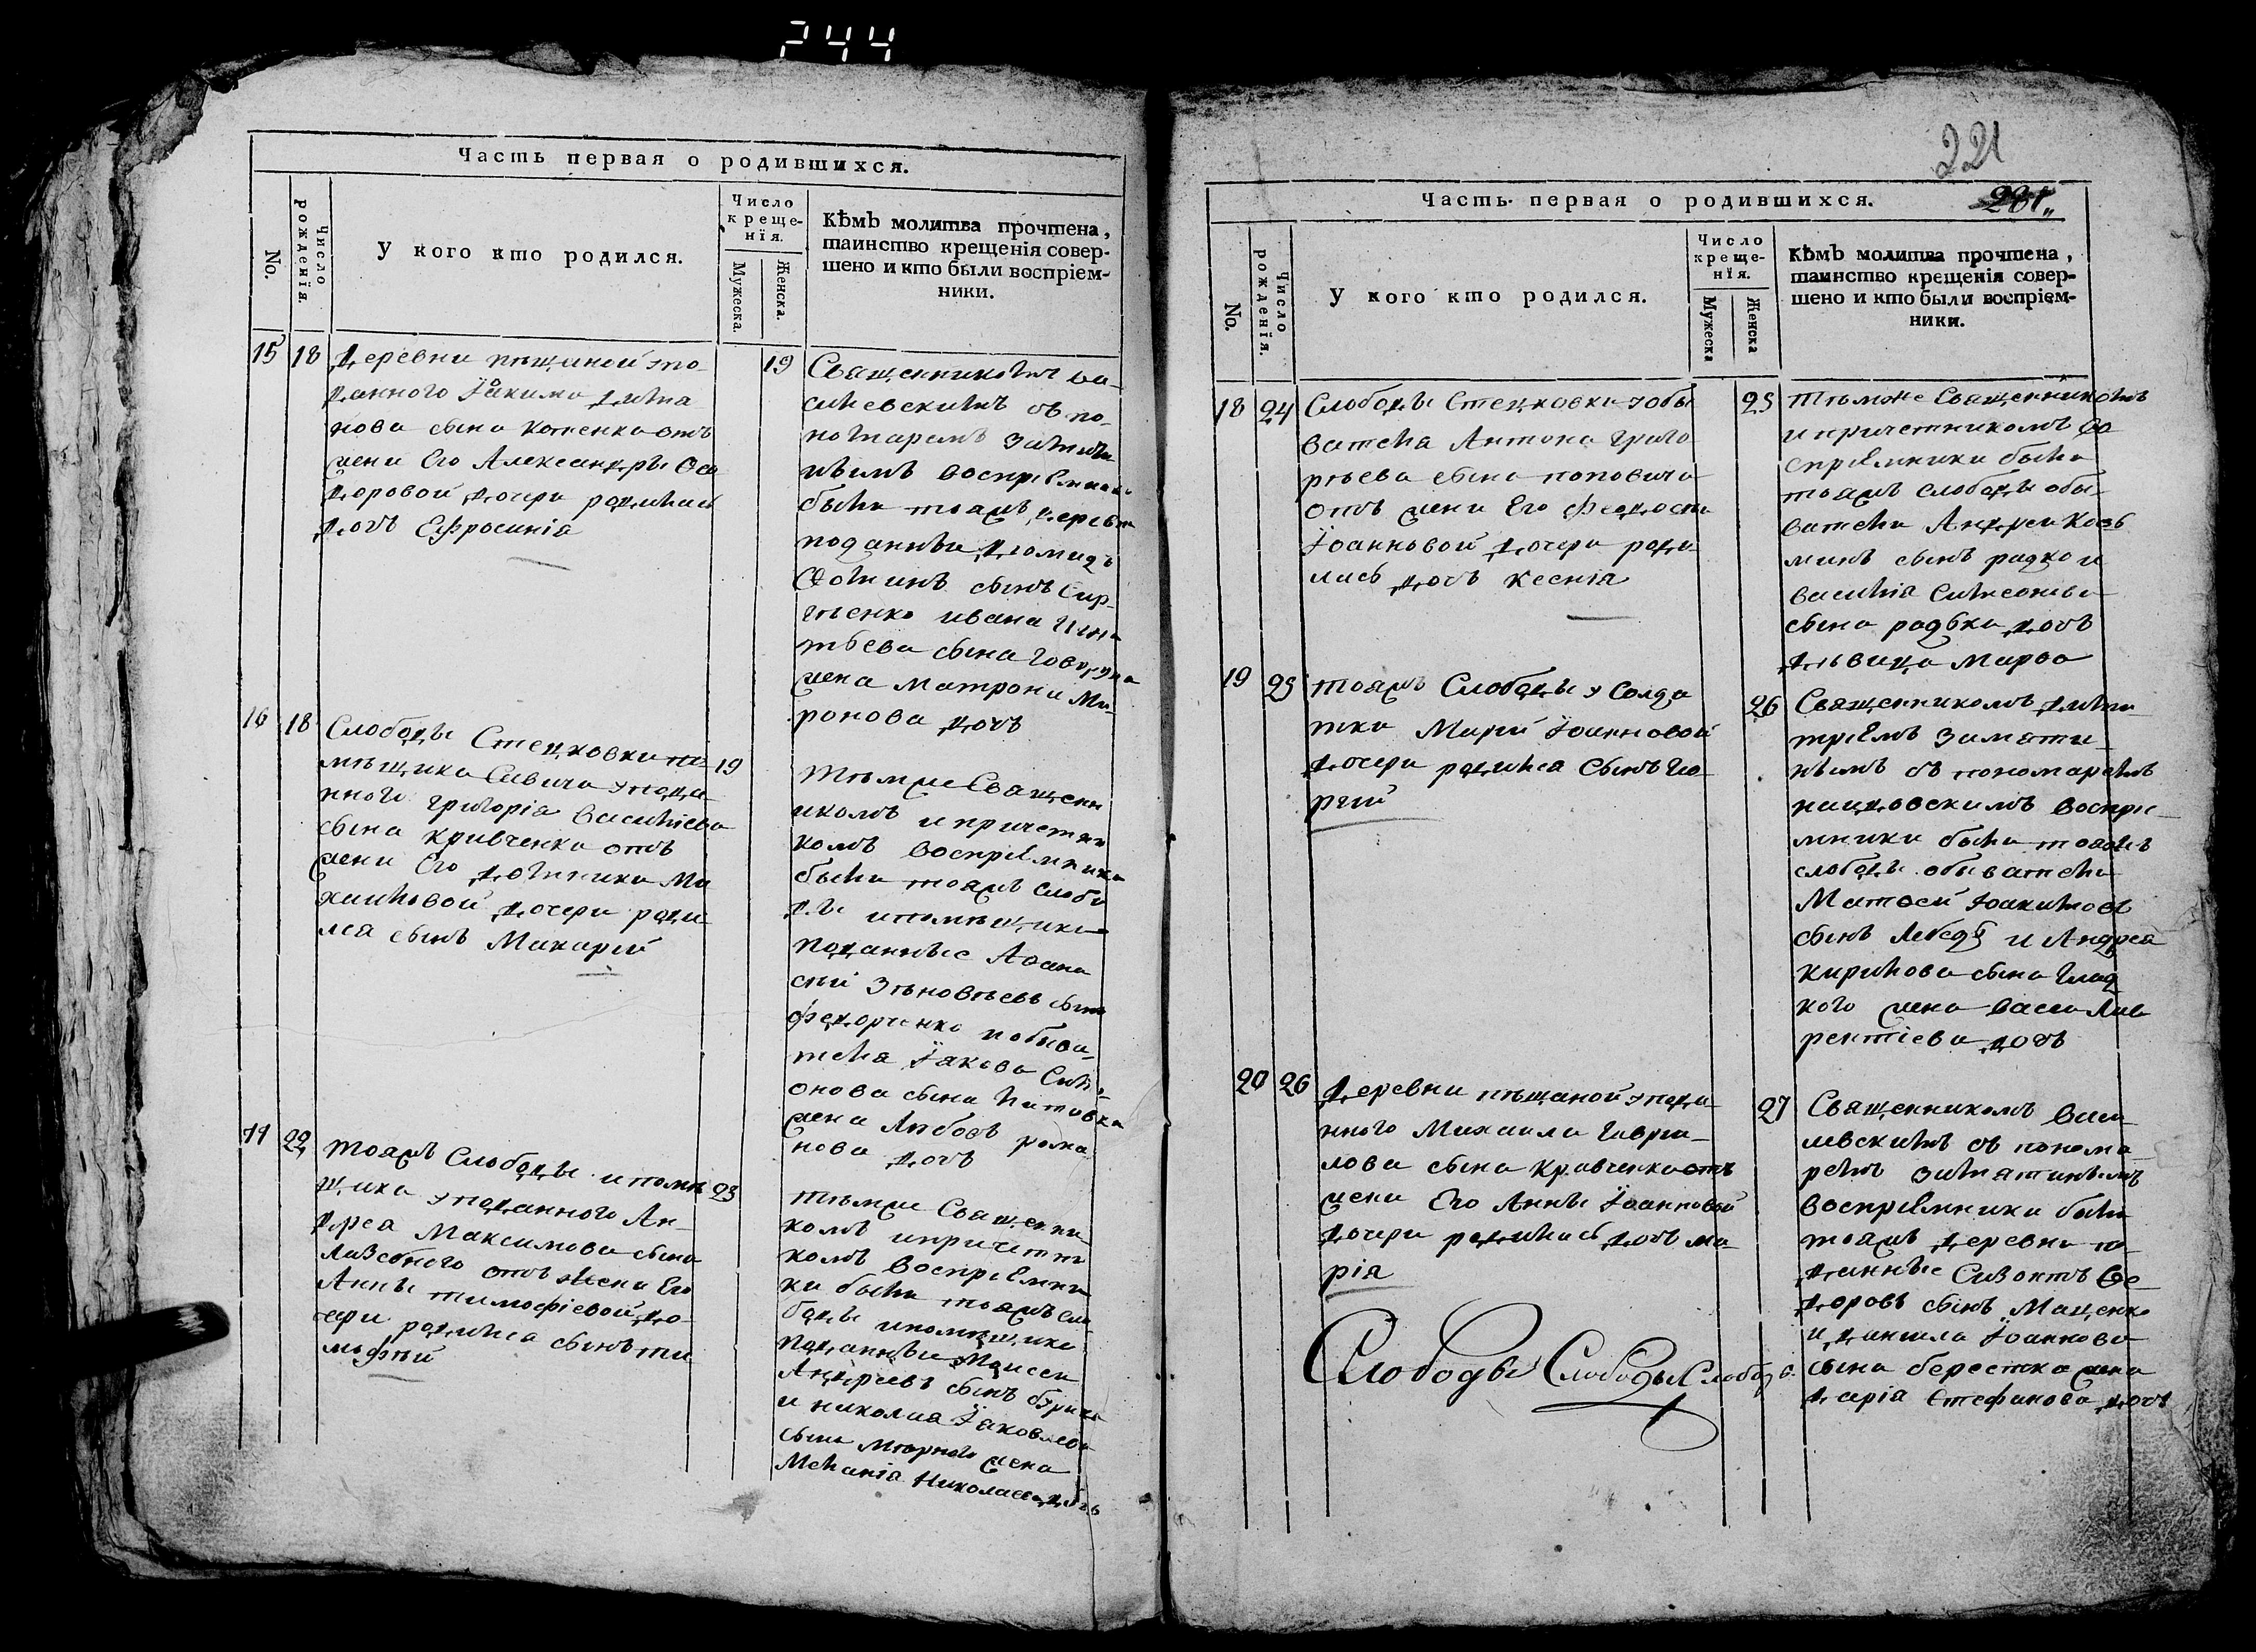 244
Часть первая о родившихся.
No.
Число рожденія.
У кого кто родился.
Число
креще-
нїя.
Мужеска.
Женска.
Кѣмъ молитва прочтена,
таинство крещенія совер-
шено и кто были воспріем-
ники.
15
18
Деревни пѣщаной упо-
данного Іакима
сына Котенка отъ
жени Его Александры Ѳео
доровой дочери родилась
дочъ Ефросинія
19
Священникомъ Ва-
силевскимъ съ по-
номаремъ
воспріемники
были тояжъ деревни
поданные Діомидъ
сынъ
ивана
сына
жена Матрона Ми-
ронова дочъ
16
18
Слободы Стецковки по-
мѣщика Савича упода-
нного Григорія Василіева
сына Кривченка отъ
жени Его Домники Ми
хаиловой дочери роди-
лся сынъ Макарій
19
Тѣмже Священн
икомъ и причетни
комъ воспріемники
были тояжъ слобо
ды ипомѣщика
поданные Аѳана
сій Зѣновѣевъ сынъ
Федорченко иобыва-
теля Іакова Сим-
онова сына
жена Любовъ рома
нова дочъ
17
22
тояжъ Слободы ипомѣ
щика уподанного Ан-
дрея Максимова сына
Лазебного отъ жени Его
Анны тимофіевой до-
чери родился сынъ ти
мофѣй
23
тѣмже Священни
комъ ипричетни
комъ воспріемни
ки были тояжъ сло-
боды ипомѣщика
поданные Моисей
Андреевъ сынъ
и николая Іаковлева
сына жена
Меланія Николаева дочъ
221
Часть первая о родившихся.
No.
Число рожденія.
У кого кто родился.
Число
креще-
нїя.
Мужеска
Женска
Кѣмъ молитва прочтена,
таинство крещенія совер-
шено и кто были воспріем-
ники.
18
24
Слободы Стецковки уобы
вателя Антона Григо
рѣева сына поповича
отъ жени Его Феодосіи
Іоанновой дочери роди-
лась дочъ Ксенія
25
тѣмже Священникомъ
и причетникомъ во
спріемники были
тояжъ слободы обы-
ватели Андрей Козь
минъ сынъ радко и
василія Симеонова
сына радька дочъ
дѣвица Марѳа
19
25
тояжъ Слободы у Солда
тки Маріи Іоанновой
дочери родился Сынъ Ге-
ргій
26
Священникомъ дими-
тріемъ Замяти-
нымъ съ пономаремъ
воспріе-
мники были тояжъ
слободы обыватели
Матѳей Іоакимовъ
сынъ Лебедь и Андрея
Кирилова сына Глад
кого жена Васса Лав
рентіева дочъ
20
26
Деревни пѣщаной упода
нного Михаила Гаври-
лова сына Кравченка отъ
жени Его Анны Іоанновой
дочери родилась дочъ Ма-
рія
27
Священникомъ Васи
левскимъ съ понома
ремъ Замятинымъ
воспріемники были
тояжъ деревни по-
данные Созонтъ Ѳе
доровъ сынъ Маценко
и данила Іоаннова
сына берестка жена
дарія Стефанова дочъ
Слободы Слободы Слобод